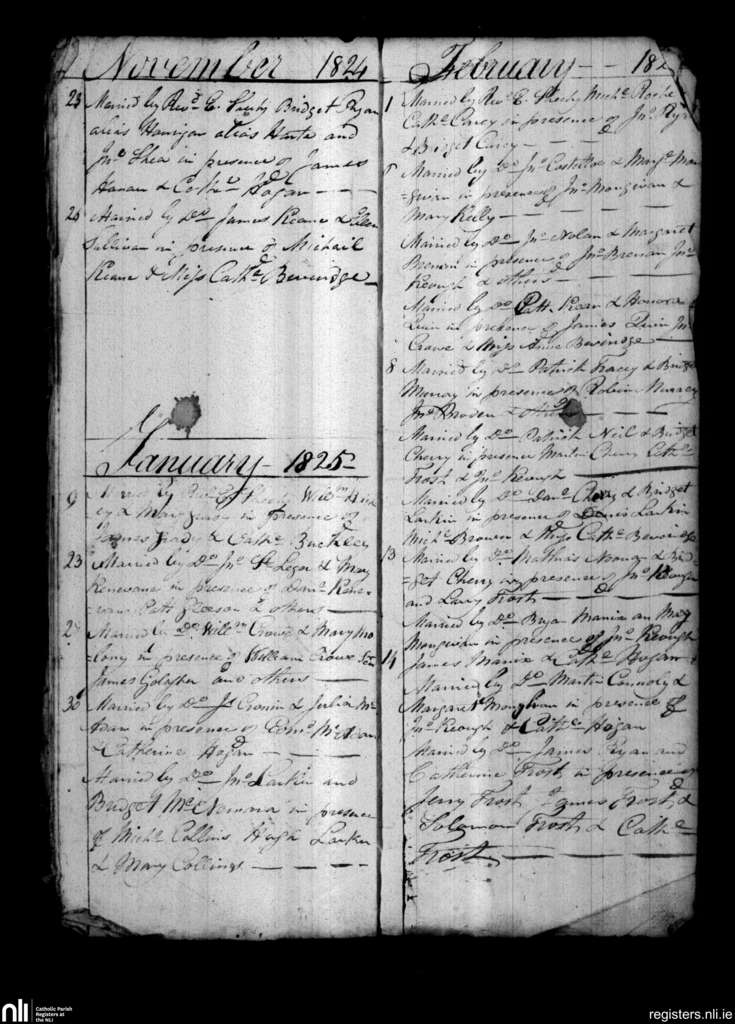 November 1824
23 Married by Revd. E. Sheehy Bridget Ryan
alias Hanrigan alias and
Jno. Shea in presence of James
Hanan & Cathe. Hogan
24 Married by Do. James Keane & Ellen
Sullivan in presence of Michail
Keane & Miss Cathe. Beveridge
January 1825
9 Married by Revd. E. Sheehy Willm.
& Mary in presence of
James Grady & Cathe. Buckley
23 Married by Do. Jno. St Leger & Mary
Renevane in presence of Danl. Rene-
=vane Patt Gleeson & others
27 Married by Do. Willm. Crowe & Mary Mo
=lony in presence of William Crowe Senr.
James and others
30 Married by Do. Js. Cronin & Julia Mc
Adam in presence of Edmd. McAdam
& Catherine Hogan
Married by Do. Jno. Larkin and
Bridget McNemara in presence
of Michl. Collins Hugh Larkin
& Mary Collings
February 182
1 Married by Revd. E. Sheehy Michl. Roche
Cathe. Carey in presence of Jno. Ryan
& Bridget Carey
Married by Do. Jno. Costelloe & Margt. Mon
=givin in presence of Jno. Mongivan &
Mary Kelly
Married by Do. Jno. Nolan & Margaret
Brenan in presence of Jno. Brenan Jno.
Keough & others
Married by Do. Patt. Kean & Honora
Quin in presence of James Quin Jno.
Crowe & Miss Anne Beveridge
8 Married by Do. Patrick Tracey & Bridgt.
Murray in presence of Robin Murray
Jno. Broden & others
Married by Do. Patrick Neil & Bridget
Cherry in presence Martin Cherry Cathe.
Frost & Jno. Keough
Married by Do. Danl. & Bridget
Larkin in presence of Denis Larkin
Michl. Browen & Miss Cathe. Beveridge
13 Married by Do. Mathias Noonan & Brid
=get Cherry in presence of Jno. Keough
and Larry Frost
Married by Do. Bryan Manix an Mary
Mongivan in presence of Jno. Keough
14 James Manix & Cathe. Hogan
Married by Do. Martin Connoly &
Margaret Monghvan in presence of
Jno. Keough & Cathe. Hogan
Married by Do. James Ryan and
Catherine Frost in presence of
Jerry Frost James Frost &
Solomon Frost & Cathe.
Frost
nli
Catholic Parish
Registers at
the NLI
registers.nli.ie